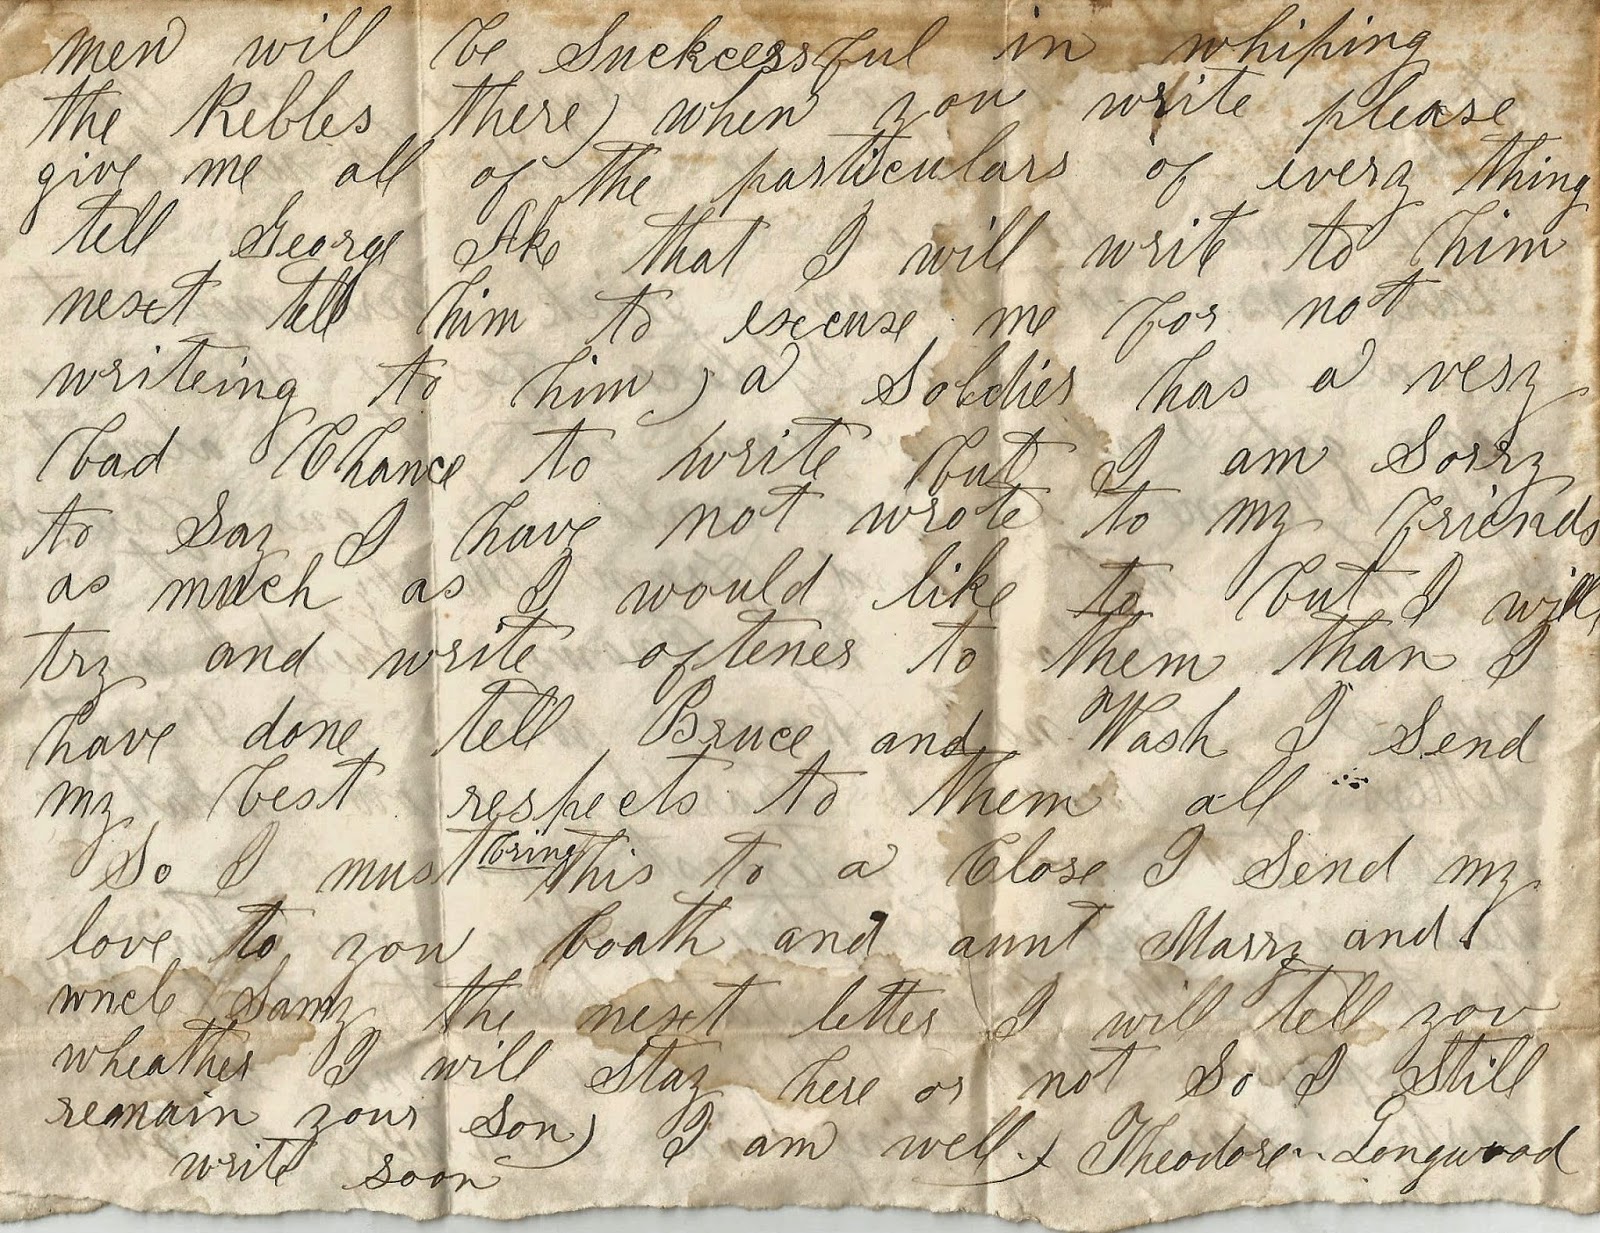 men will be Suckcessful in whiping
the Rebles there) when you write please
give me all of the particulars of every thing
tell George Ake that I will write to him
next tell him to excuse me for not
writeing to him) a Soldier has a very
bad Chance to write but I am Sorry
to Say I have not wrote to my friends
as much as I would like to but I will
try and write oftener to them than I
have done tell Bruce and Wash I Send
my best respects to them all
So I must bring this to a Close I Send my
love to you boath and aunt Marry and
uncle Samy the next letter I will tell you
wheather I will Stay here or not So I Still
remain your Son) I am well) Theodore Longwood
write soon